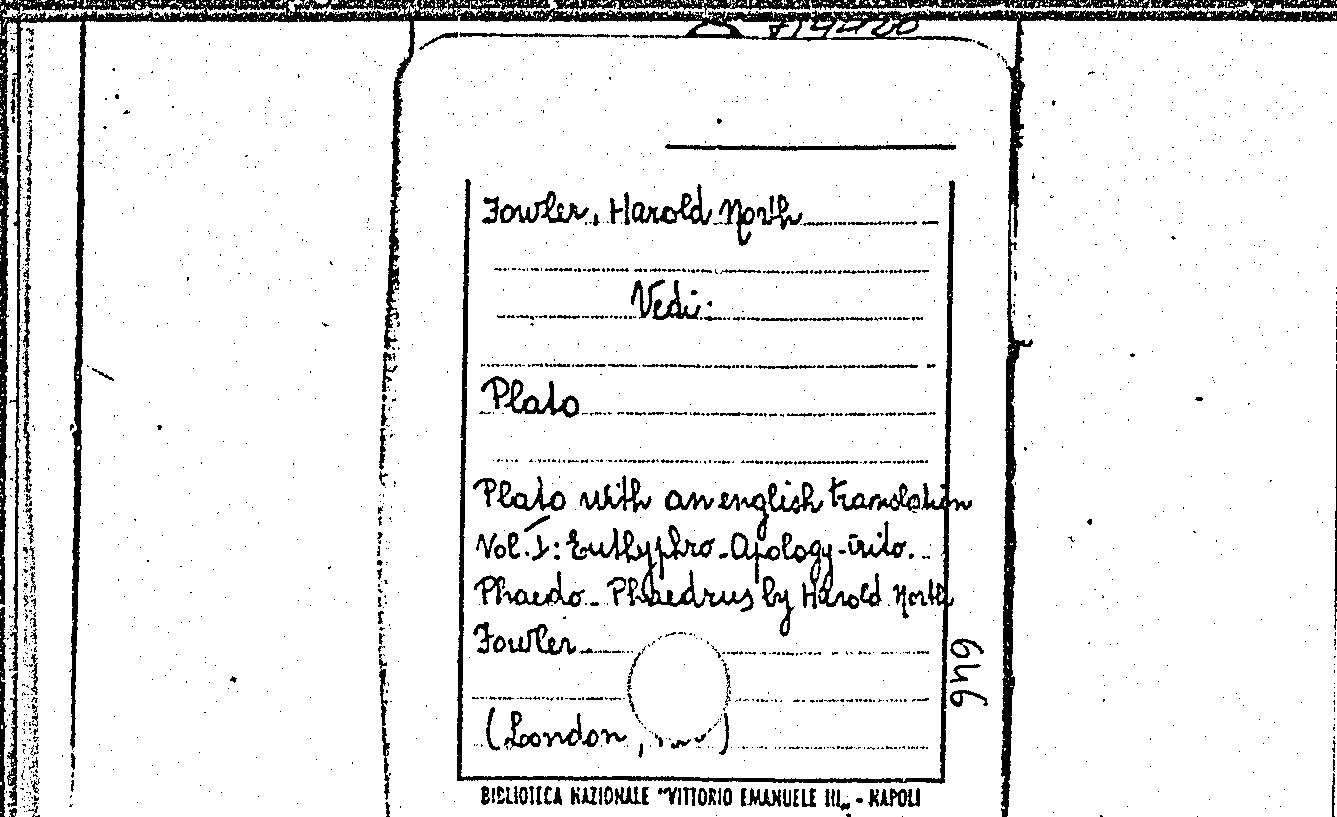 Fowler, Harold North
Vedi:
Plato
Plato with an english translation
Vol. I: Euthyphro - Apology - Crito.
Phaedo - Phaedrus by Harold North
Fowler
(London,
646
BIBLIOTECA NAZIONALE "VITTORIO EMANUELE III„ - NAPOLI